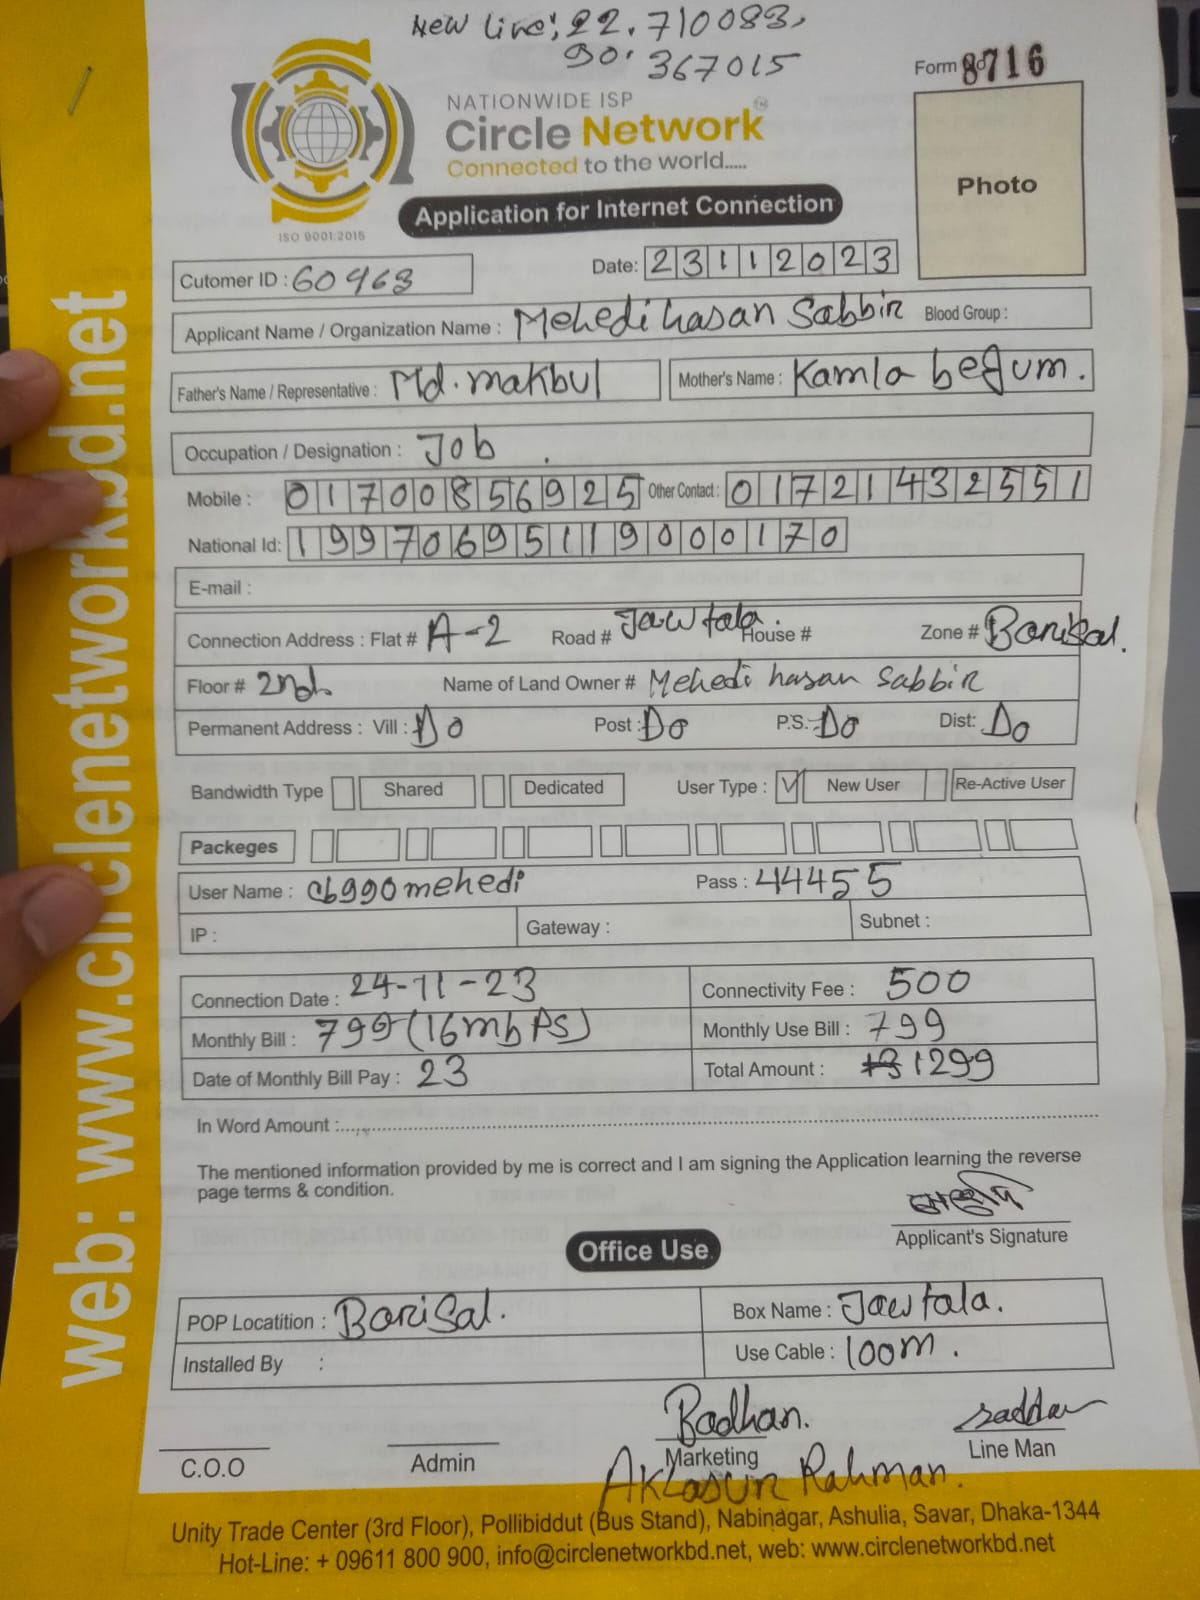 New line: 22.710083,
90.367015
Form 8716
NATIONWIDE ISP
Circle Network TM
Connected to the world.....
ISO 9001:2015
Application for Internet Connection
Photo
Cutomer ID : 60963
Date: 23112023
Applicant Name / Organization Name : Mehedi hasan Sabbir Blood Group :
Father's Name / Representative : Md. makbul Mother's Name : Kamla begum.
Occupation / Designation : Job .
Mobile : 01700856925 Other Contact : 01721432551
National Id: 19970695119000170
E-mail :
Connection Address : Flat # A-2 Road # Jawtala. House # Zone # Barisal.
Floor # 2nd Name of Land Owner # Mehedi hasan Sabbir
Permanent Address : Vill : Do Post : Do P.S. Do Dist: Do
Bandwidth Type Shared Dedicated User Type : New User Re-Active User
Packeges
User Name : cb990mehedi Pass : 44455
IP : Gateway : Subnet :
Connection Date : 24-11-23 Connectivity Fee : 500
Monthly Bill : 799 (16mbps) Monthly Use Bill : 799
Date of Monthly Bill Pay : 23 Total Amount : 1299
In Word Amount :
The mentioned information provided by me is correct and I am signing the Application learning the reverse
page terms & condition.
Applicant's Signature
Office Use
POP Locatition : Barisal. Box Name : Jawtala.
Installed By : Use Cable : 100m.
Badhan. saddam
C.O.O Admin Marketing Line Man
Aklasur Rahman.
Unity Trade Center (3rd Floor), Pollibiddut (Bus Stand), Nabinagar, Ashulia, Savar, Dhaka-1344
Hot-Line: + 09611 800 900, info@circlenetworkbd.net, web: www.circlenetworkbd.net
web: www.circlenetworkbd.net